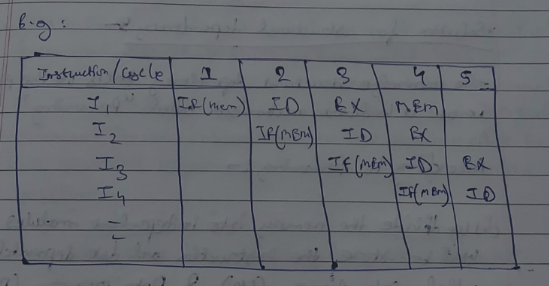 E.g :
Instruction / Cycle 1 2 3 4 5
I1 IF(mem) ID EX MEM
I2 IF(MEM) ID EX
I3 IF(MEM) ID EX
I4 IF(MEM) ID
-
-